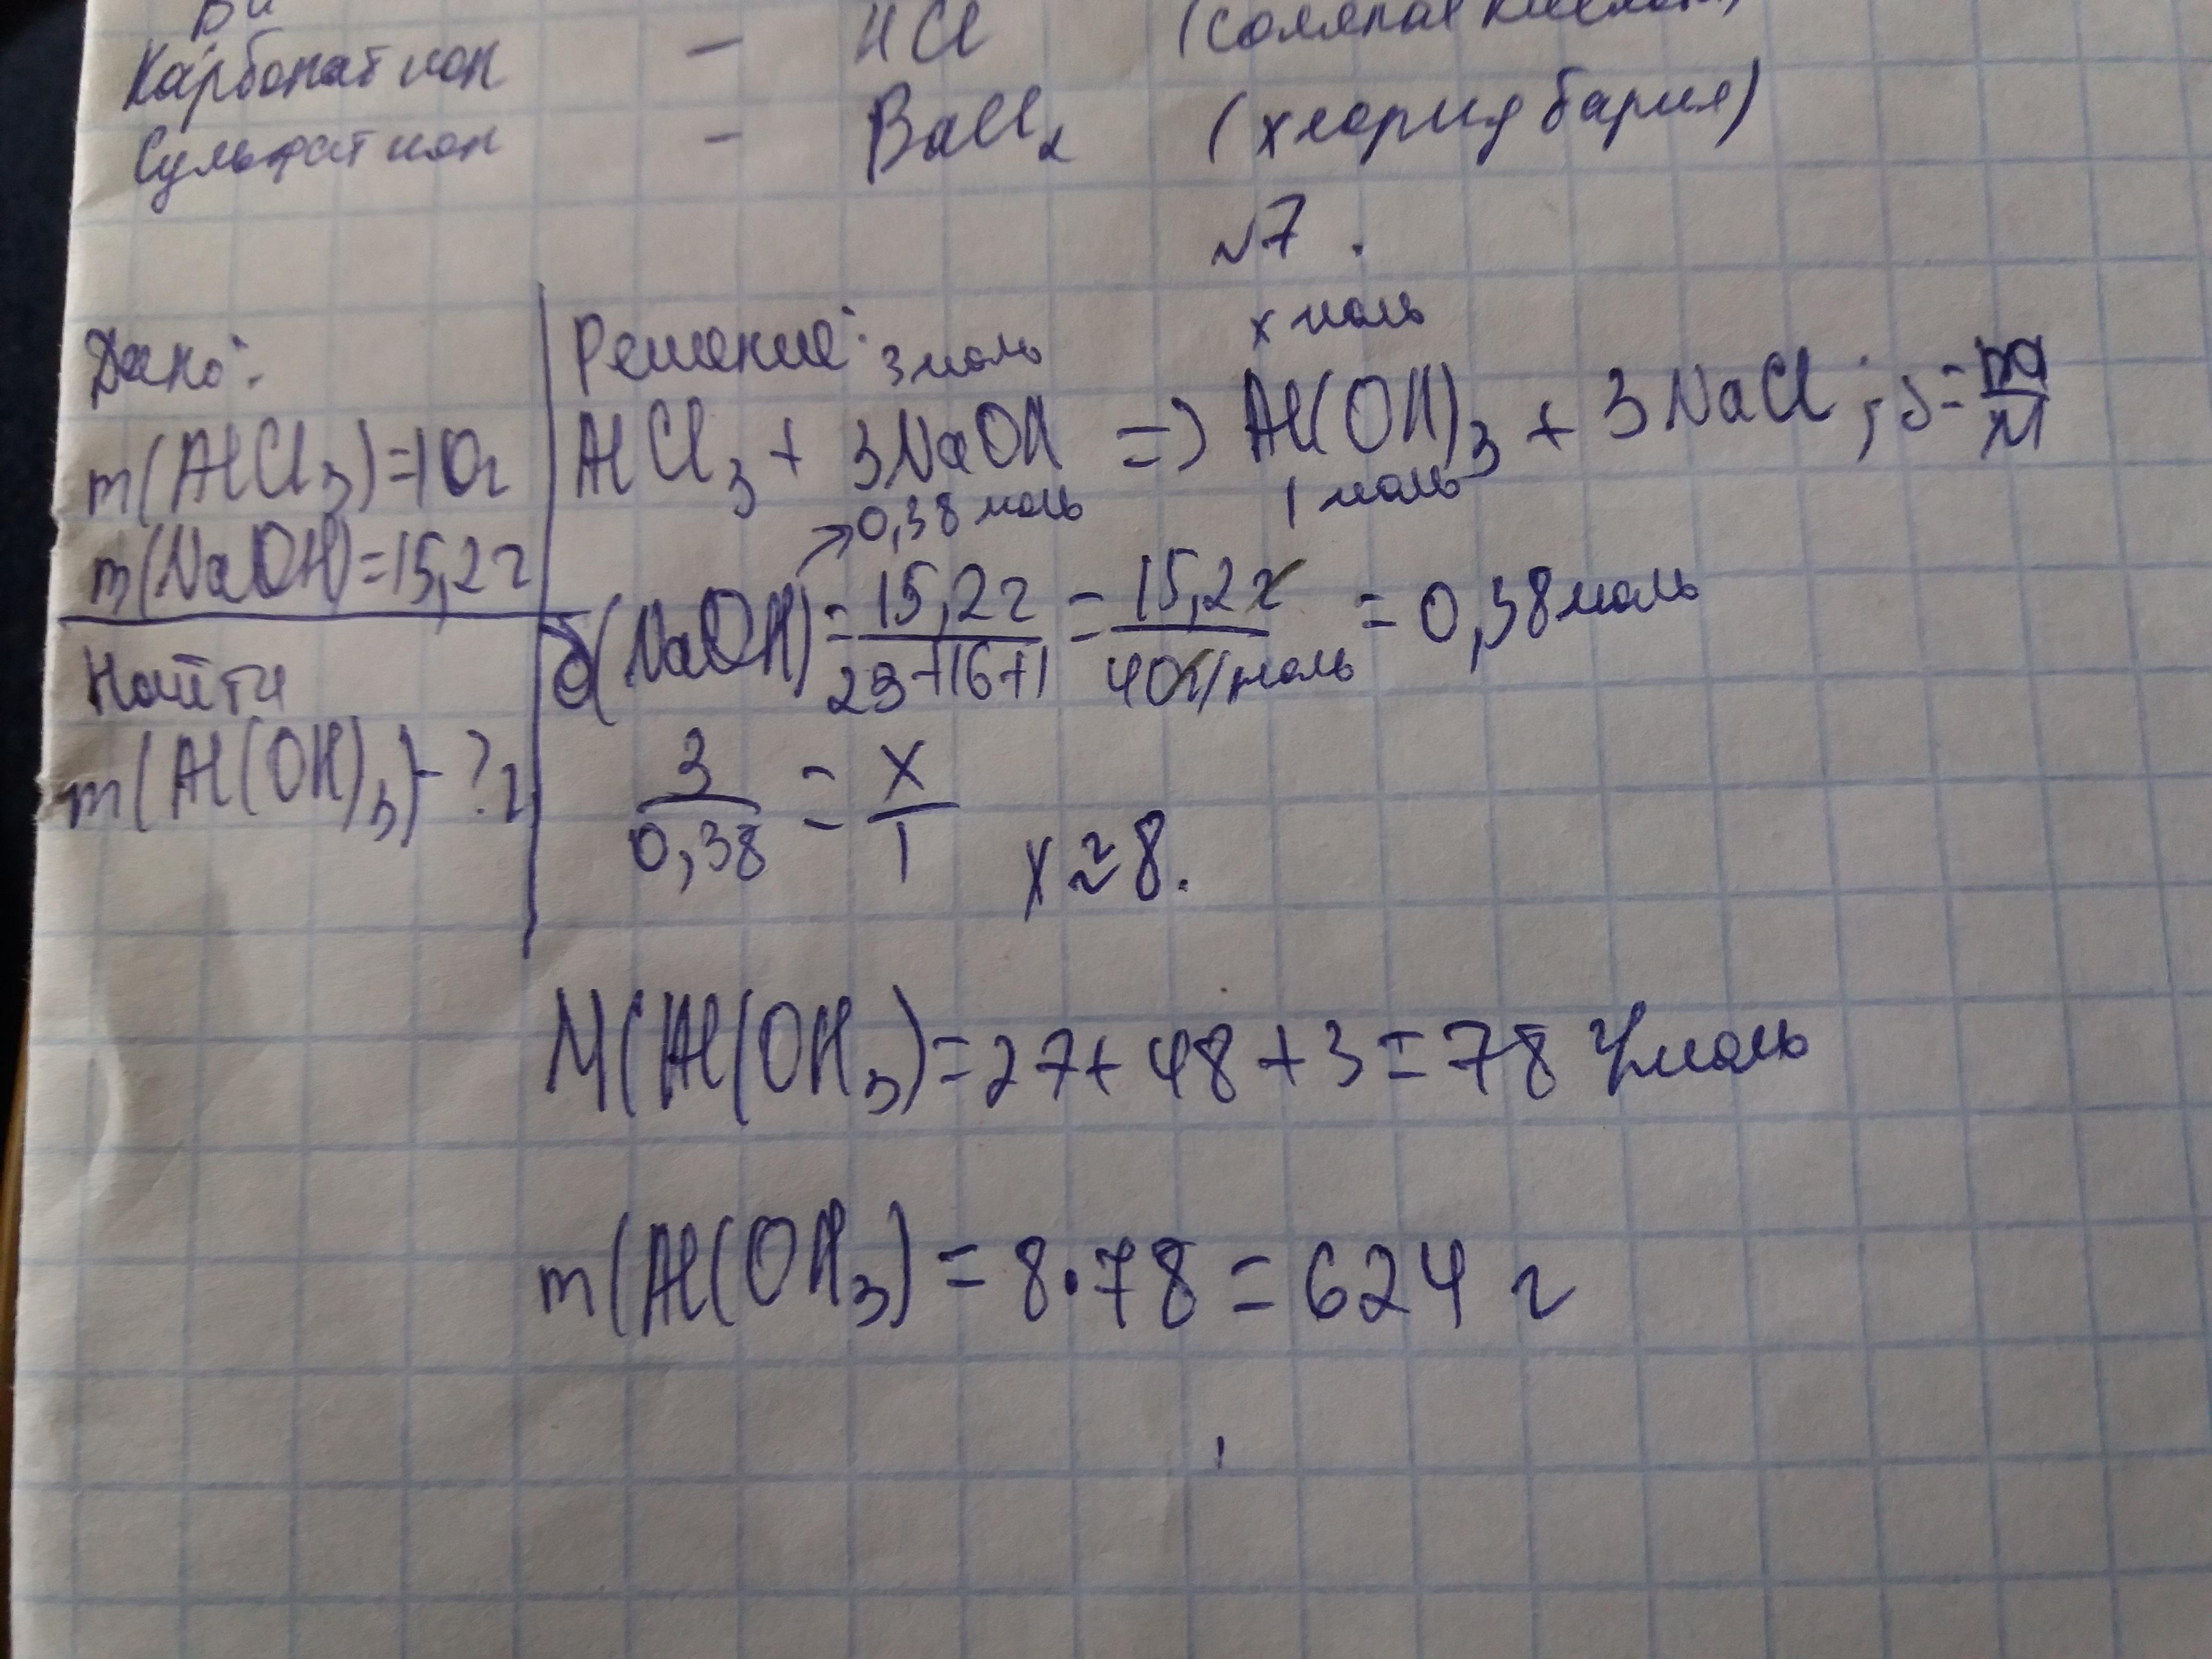 Карбонат ион - HCl (соляная кислота)
Сульфат ион - BaCl₂ (хлорид бария)
№7.
Дано:
m(AlCl₃)=10г
m(NaOH)=15,2г
Найти
m(Al(OH)₃)-?г
Решение:
3 моль x моль
AlCl₃ + 3NaOH => Al(OH)₃ + 3NaCl ; υ = m/M
→0,38 моль 1 моль
υ(NaOH) = 15,2г/23+16+1 = 15,2г/40г/моль = 0,38 моль
3/0,38 = x/1 x≈8.
M(Al(OH₃) = 27+48+3=78 г/моль
m(Al(OH₃) = 8·78 = 624 г